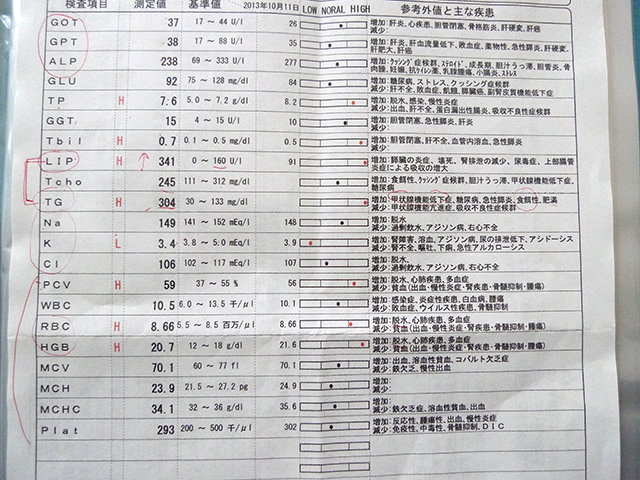 検査項目 測定値 基準値 2013年10月11日 LOW NORAL HIGH 参考外値と主な疾患
GOT 37 17 ~ 44 U/l 26 増加: 肝炎、心疾患、胆管閉塞、骨格筋炎、肝硬変、肝癌
減少:
GPT 38 17 ~ 88 U/l 35 増加: 肝炎、肝血流量低下、敗血症、薬物性、急性膵炎、肝硬変、肝肥大、肝癌
減少:
ALP 238 69 ~ 333 U/l 277 増加: クッシング症候群、ステロイド、成長期、胆汁うっ滞、胆管炎、骨肉腫、妊娠、抗ケイレン薬、乳腺腫瘍、小腸炎、ストレス
GLU 92 75 ~ 128 mg/dl 84 増加: 糖尿病、ストレス、クッシング症候群
減少: 肝不全、敗血症、飢餓、膵臓癌、副腎皮質機能低下症
TP H 7.6 5.0 ~ 7.2 g/dl 8.2 増加: 脱水、感染、慢性炎症
減少: 出血、肝不全、蛋白漏出性腸炎、吸収不良性症候群
GGT 15 4 ~ 15 U/l 10 増加: 胆管閉塞、急性膵炎、肝炎
減少:
Tbil H 0.7 0.1 ~ 0.5 mg/dl 0.5 増加: 胆管閉塞、肝不全、血管内溶血、急性膵炎
減少:
LIP H 341 0 ~ 160 U/l 91 増加: 膵臓の炎症、壊死、腎排泄の減少、尿毒症、上部腸管炎症による吸収の増大
Tcho 245 111 ~ 312 mg/dl 増加: 食餌性、クッシング症候群、胆汁うっ滞、甲状腺機能低下症、糖尿病
TG H 304 30 ~ 133 mg/dl 増加: 甲状腺機能低下症、糖尿病、急性膵炎、食餌性、肥満
減少: 甲状腺機能亢進症、吸収不良性症候群
Na 149 141 ~ 152 mEq/l 148 増加: 脱水
減少: 過剰飲水、アジソン病、右心不全
K L 3.4 3.8 ~ 5.0 mEq/l 3.9 増加: 腎障害、溶血、アジソン病、尿の排泄低下、アシドーシス
減少: 腎不全、嘔吐、下痢、急性アルカローシス
Cl 106 102 ~ 117 mEq/l 107 増加: 脱水、
減少: 過剰飲水、アジソン病、右心不全
PCV H 59 37 ~ 55 % 56 増加: 脱水、心肺疾患、多血症
減少: 貧血(出血・慢性炎症・腎疾患・骨髄抑制・腫瘍)
WBC 10.5 6.0 ~ 13.5 千/μl 10.1 増加: 感染症、炎症性疾患、白血病、腫瘍
減少: 敗血症、ウイルス性疾患、骨髄抑制
RBC H 8.66 5.5 ~ 8.5 百万/μl 8.66 増加: 脱水、心肺疾患、多血症
減少: 貧血(出血・慢性炎症・腎疾患・骨髄抑制・腫瘍)
HGB H 20.7 12 ~ 18 g/dl 21.6 増加: 脱水、心肺疾患、多血症
減少: 貧血(出血・慢性炎症・腎疾患・骨髄抑制・腫瘍)
MCV 70.1 60 ~ 77 fl 70.1 増加: 出血、溶血性貧血、コバルト欠乏症
減少: 鉄欠乏、慢性出血
MCH 23.9 21.5 ~ 27.2 pg 24.9 増加:
減少:
MCHC 34.1 32 ~ 36 g/dl 35.6 増加:
減少: 鉄欠乏症、溶血性貧血、出血
Plat 293 200 ~ 500 千/μl 302 増加: 反応性、腫瘍性、出血、慢性炎症
減少: 免疫性、中毒性、骨髄抑制、DIC